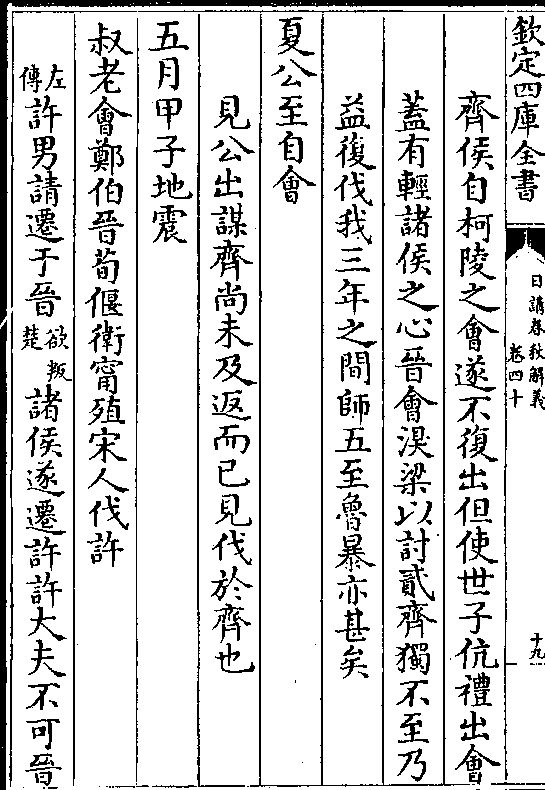 欽定四庫全書
日講春秋解義
卷四十
十九
齊侯自柯陵之會遂不復出但使世子伉禮出會
蓋有輕諸侯之心晉會湨梁以討貳齊獨不至乃
益復伐我三年之間師五至魯暴亦甚矣
夏公至自會
見公出謀齊尚未及返而已見伐於齊也
五月甲子地震
叔老會鄭伯晉荀偃衛甯殖宋人伐許
左傳許男請遷于晉欲叛楚諸侯遂遷許許大夫不可晉